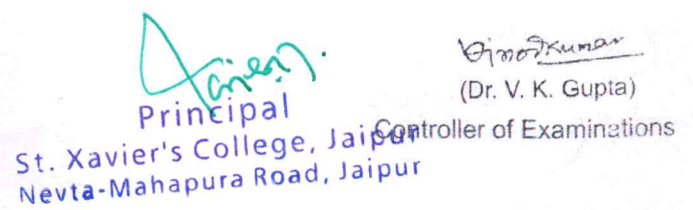 Principal
St. Xavier's College, Jaipur
Nevta-Mahapura Road, Jaipur
Vinodkumar
(Dr. V. K. Gupta)
Controller of Examinations